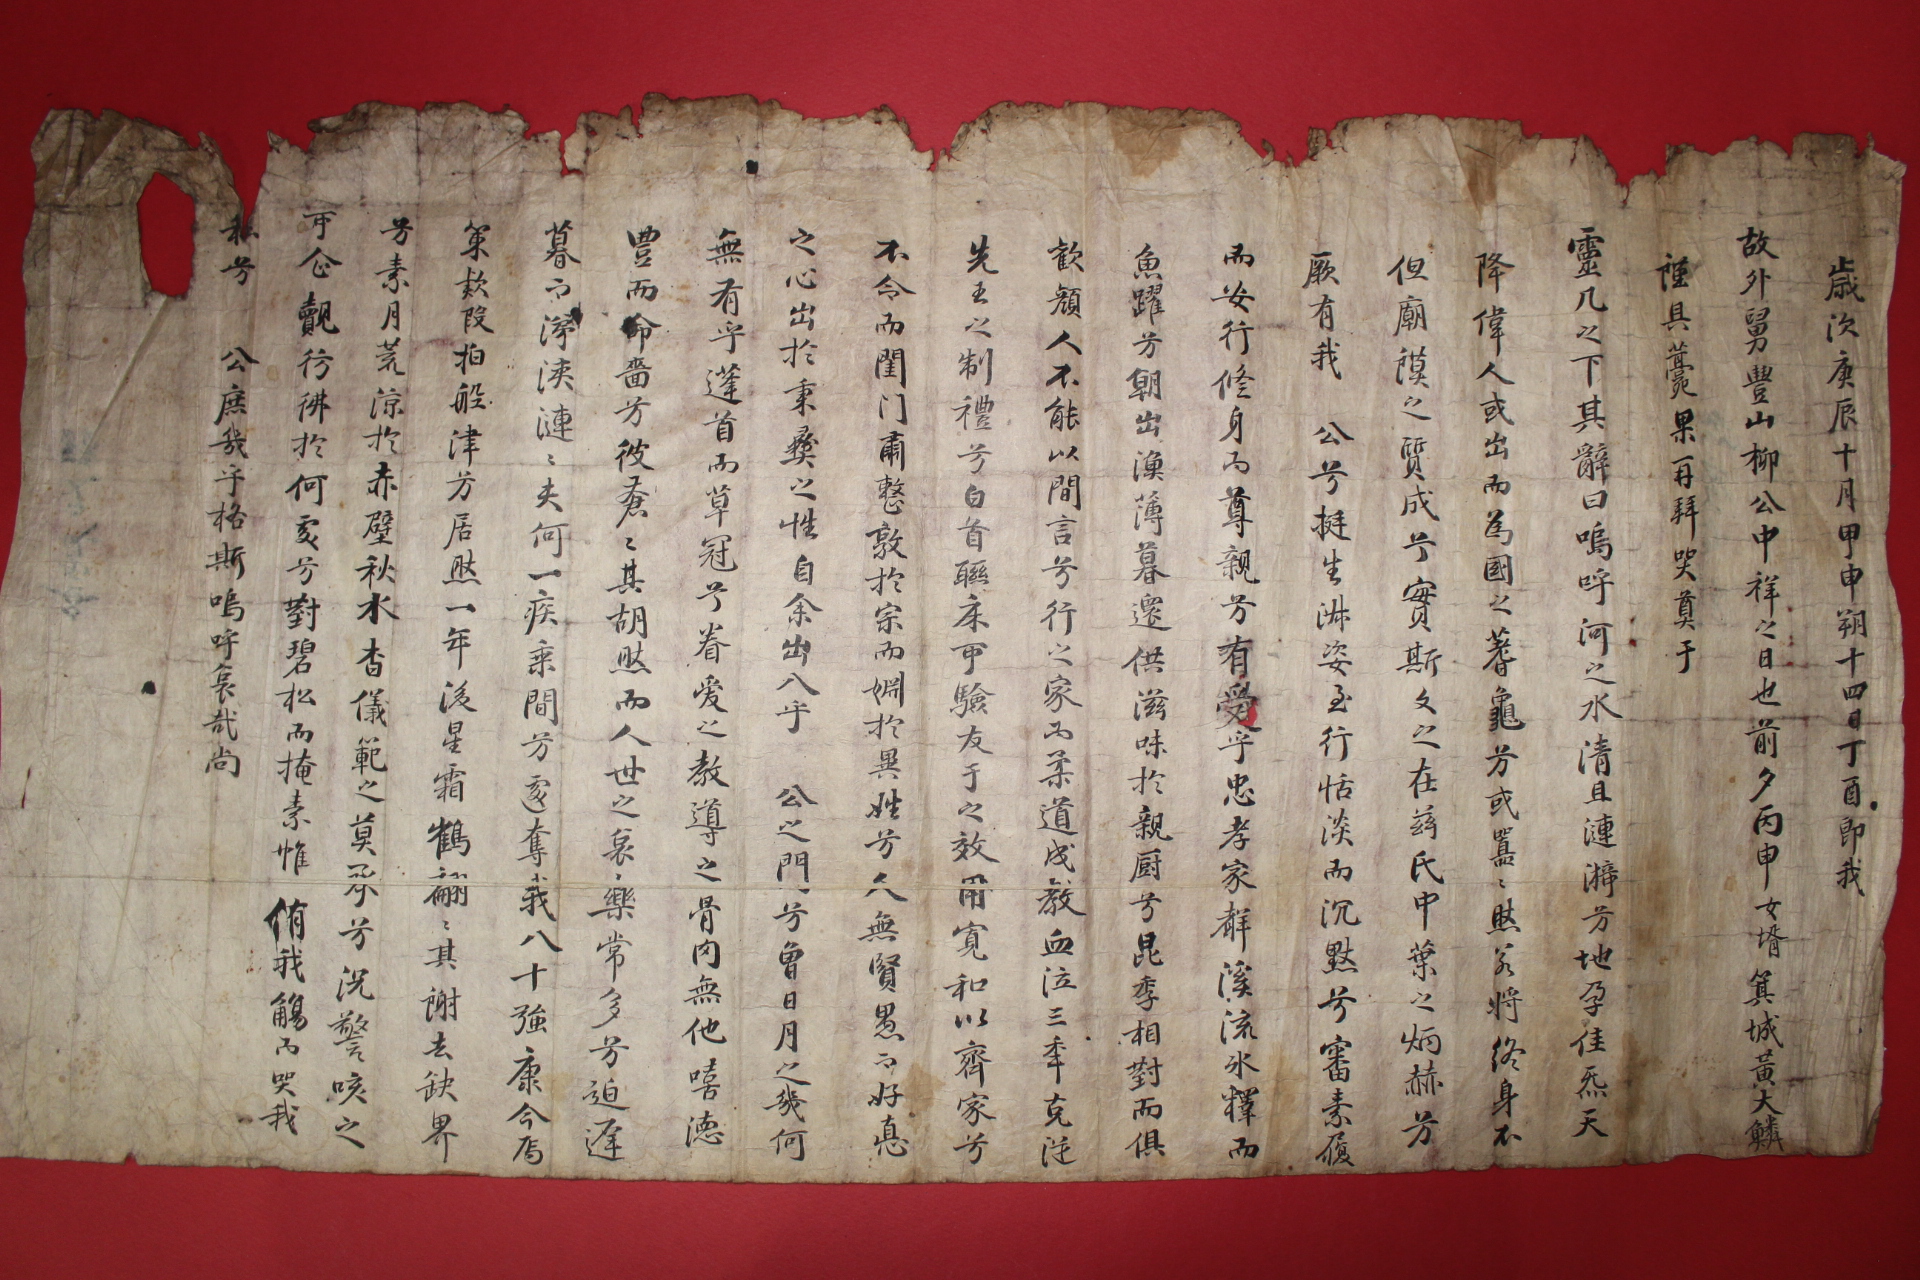 歲次庚辰十月甲申朔十四日丁酉卽我
故外舅豐山柳公中祥之日也前夕丙申女壻箕城黃大鱗
謹具薧果再拜哭奠于
靈几之下其辭曰嗚呼河之水清且漣漪兮地孕佳炁天
降偉人或出而爲國之蓍龜兮或嚚〻然若將終身不
但廟謨之贤成兮實斯文之在茲氏中葉之炳赫兮
厥有我 公兮挺生淋姿至行恬淡而沉默兮審素履
而安行修身而尊親兮有受乎忠孝家群溪流氷釋而
魚躍兮朝出漁薄暮還供滋味於親廚兮昆季相對而俱
歡顔人不能以間言兮行之家而柔道成教血泣三年克從
先王之制禮兮白首聯床可驗友于之效用寬和以齊家兮
不令而閨门肅整敦於宗而婣於異姓兮人無賢愚而好悳
之心出於秉彝之性自余出入乎 公之門兮曾日月之幾何
無有乎蓬首而草冠兮眷愛之教導之骨肉無他嘻德
豊而命嗇兮彼蒼〻其胡然而人世之哀樂常多兮迫遲
暮而淚漣〻夫何一疾乘間兮遽奪我八十強康今焉
策欵段拍船津兮居然一年後星霜鶴翩〻其謝去缺界
兮素月荒涼於赤壁秋水杳儀範之莫承兮況警咳之
可仚觀彷彿於何處兮對碧松而掩素帷 侑我觴而哭我
私兮 公庶幾乎格斯嗚呼哀哉尚